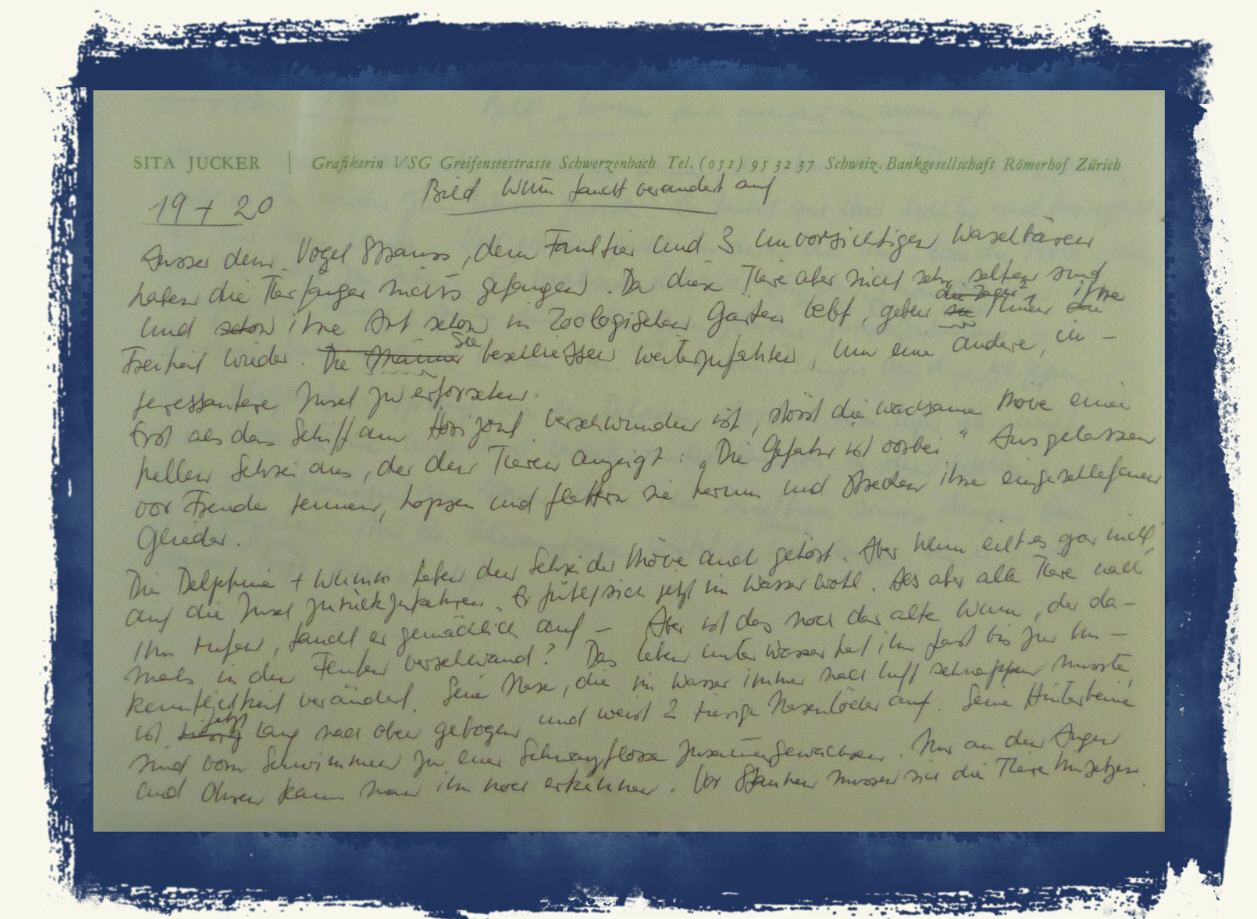 SITA JUCKER | Grafikerin VSG Greifenseestrasse Schwerzenbach Tel. (051) 95 32 37 Schweiz. Bankgesellschaft Römerhof Zürich
Bild Wum taucht verändert auf
19 + 20
Ausser dem Vogel Strauss, dem Faultier und 3 unvorsichtigen Waschbären
haben die Tierfänger nichts gefangen. Da diese Tiere aber nicht sehr selten sind
und schon ihre Art schon im Zoologischen Garten lebt, geben sie die Jäger ihnen die ihre
Freiheit wieder. Die Männer Sie beschliessen weiterzufahren, um eine andere, in-
teressantere Insel zu erforschen.
Erst als das Schiff am Horizont verschwunden ist, stösst die wachsame Möve einen
hellen Schrei aus, der den Tieren anzeigt: „Die Gefahr ist vorbei" Ausgelassen
vor Freude rennen, hopsen und flattern sie herum und strecken ihre eingeschlafenen
Glieder.
Die Delphine + Wum haben den Schrei der Möve auch gehört. Aber Wum eilt es gar nicht,
auf die Insel zurückzufahren. Er fühlt sich jetzt im Wasser wohl. Als aber alle Tiere nach
ihm rufen, taucht er gemächlich auf – Aber ist das noch der alte Wum, der da-
mals in den Fluten verschwand? Das Leben unter Wasser hat ihn fast bis zur Un-
kenntlichkeit verändert. Seine Nase, die im Wasser immer nach Luft schnappen musste,
ist jetzt lang nach oben gebogen und weist 2 riesige Nasenlöcher auf. Seine Hinterbeine
sind vom Schwimmen zu einer Schwanzflosse zusammengewachsen. Nur an den Augen
und Ohren kann man ihn noch erkennen. Vor Staunen müssen sich die Tiere hinsetzen.